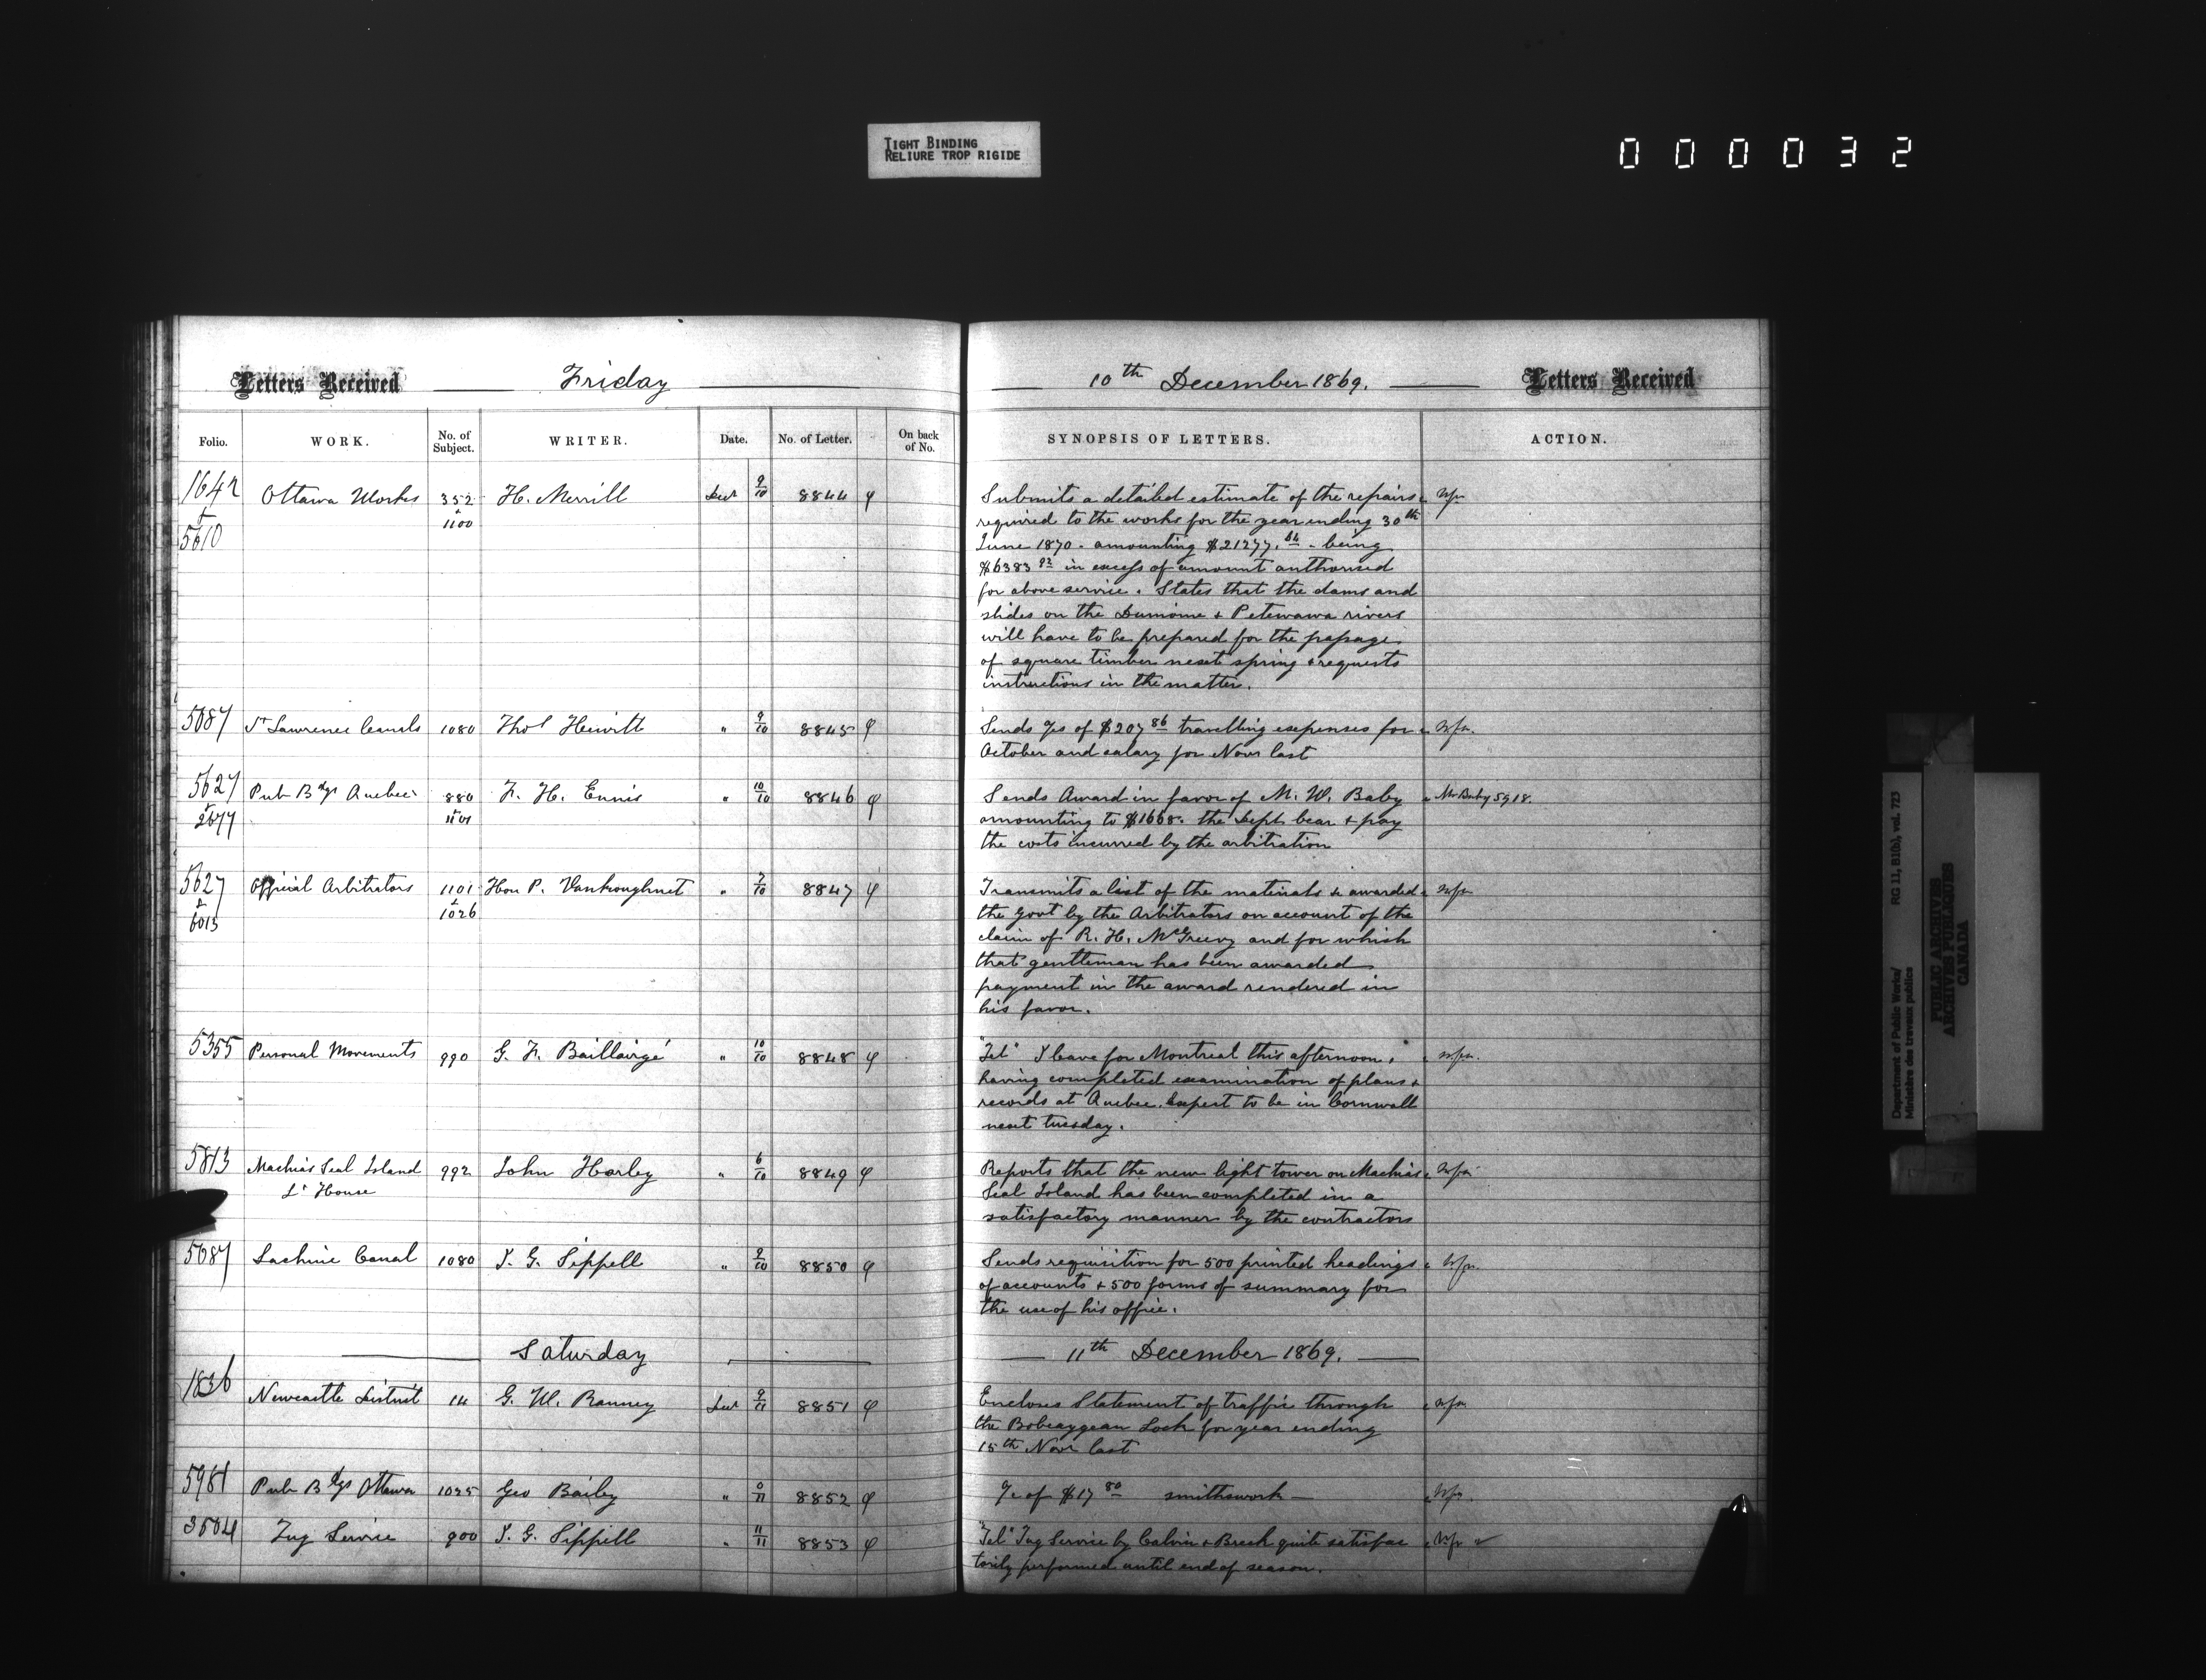 TIGHT BINDING
RELIURE TROP RIGIDE
000032
Letters Received Friday 10th December 1869. Letters Received
Folio. WORK. No. of Subject. WRITER. Date. No. of Letter. On back of No. SYNOPSIS OF LETTERS. ACTION.
1642 & 5610 Ottawa Works 352 & 1100 H. Merrill Decr 9/10 8844 Submits a detailed estimate of the repairs
required to the works for the year ending 30th
June 1870 - amounting $21277.84 - being
$6383 92 in excess of amount authorised
for above service. States that the dams and
slides on the Dumoine & Petewawa rivers
will have to be prepared for the passage
of square timber next spring & requests
instructions in the matter.
5087 St Lawrence Canals 1080 Thos Hewitt " 9/10 8845 Sends a/cs of $207 86 travelling expenses for
October and salary for Novr last
5627 & 2677 Pub Bdgs Quebec 880 & 1101 F. H. Ennis " 10/10 8846 Sends Award in favor of M. W. Baby Mr Baby 5918.
amounting to $1668. the Dept bear & pay
the costs incurred by the arbitration
5627 & 6013 Official Arbitrators 1101 & 1026 Hon P. Vankoughnet " 7/10 8847 Transmits a list of the materials &c awarded
the Govt by the Arbitrators on account of the
claim of R. H. McGreevy and for which
that gentleman has been awarded
payment in the award rendered in
his favor.
5355 Personal Movements 990 G. F. Baillairgé " 10/10 8848 "Tel" I leave for Montreal this afternoon,
having completed examination of plans &
records at Quebec. Expect to be in Cornwall
next tuesday.
5813 Machias Seal Island Lt House 992 John Harley " 6/10 8849 Reports that the new light tower on Machias
Seal Island has been completed in a
satisfactory manner by the contractors
5087 Lachine Canal 1080 J. G. Sippell " 9/10 8850 Sends requisition for 500 printed headings
of accounts & 500 forms of summary for
the use of his office.
Saturday 11th December 1869.
1836 Newcastle District 14 G. W. Ranney Decr 9/11 8851 Encloses Statement of traffic through
the Bobcaygean Lock for year ending
15th Novr last
5981 Pub Bdgs Ottawa 1025 Geo Bailey " 0/11 8852 a/c of $17 80 smithswork
3504 Tug Service 900 J. G. Sippell " 11/11 8853 "Tel" Tug Service by Calvin & Breck quite satisfac
torily performed until end of season.
Department of Public Works/ RG 11, B1(b), vol. 723
Ministère des travaux publics
PUBLIC ARCHIVES
ARCHIVES PUBLIQUES
CANADA